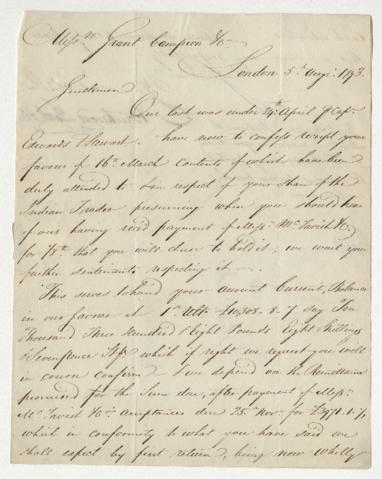 Mess.rs Grant Campion &Co
London 5th Augt. 1793.
Gentlemen
Our last was under 24th April p Capt.
Edwards & Stewart. have now to confess receipt your
favour of 16th March Contents of which have been
duly attended to & in respect of your share of the
Indian Trader presuming when you should hear
of our having recd payment of Messrs McTavish &Co.
for that you will chuse to hold it; we wait your
further sentiments respecting it
This serves to hand your account Current, Balance
in our favour at 1st Octbr £10,308.8.7 say Ten
Thousand Three Hundred & Eight Pounds Eight Shillings
& Sevenpence Stg which if right we request you will
in course confirm & we depend on the Remittance
promised for the Sum due, after payment of Messrs
McTavish &Co. acceptances due 25th Novr for
which in conformity to what you have said we
shall expect by first return, being now wholly